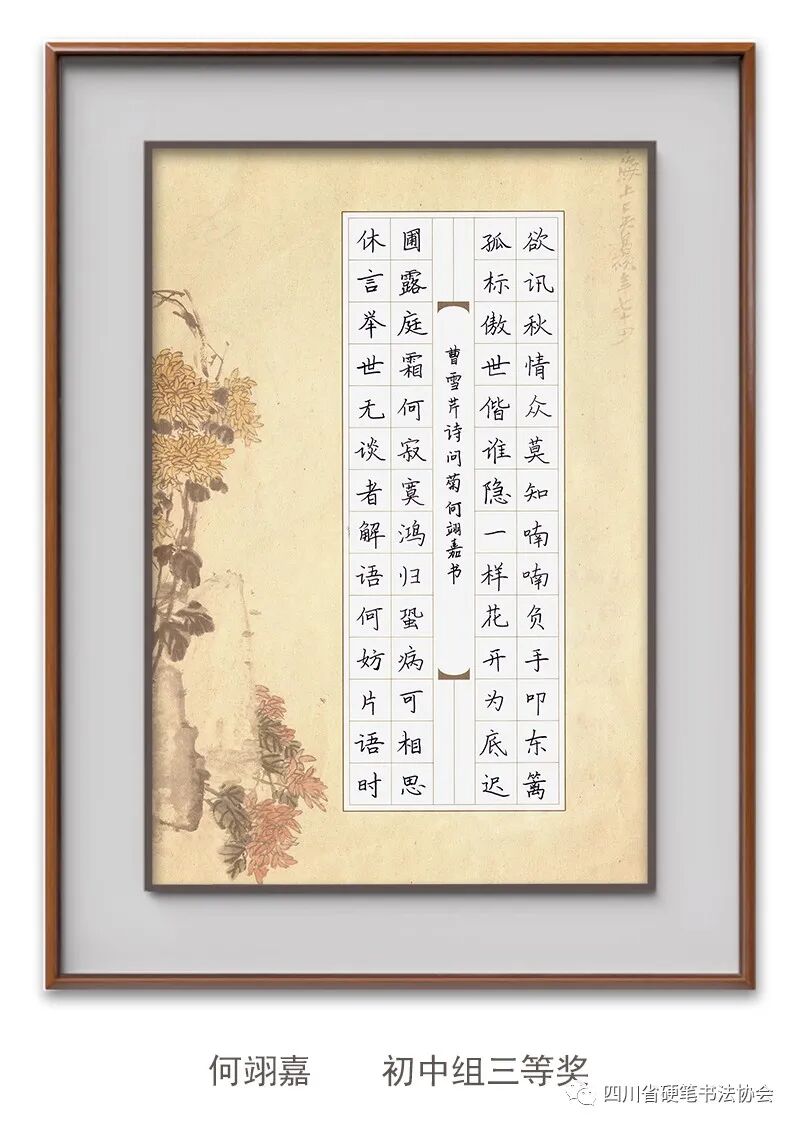 欲讯秋情众莫知喃喃负手叩东篱
孤标傲世偕谁隐一样花开为底迟
曹雪芹诗问菊何翊嘉书
圃露庭霜何寂寞鸿归蛩病可相思
休言举世无谈者解语何妨片语时
何翊嘉 初中组三等奖
四川省硬笔书法协会